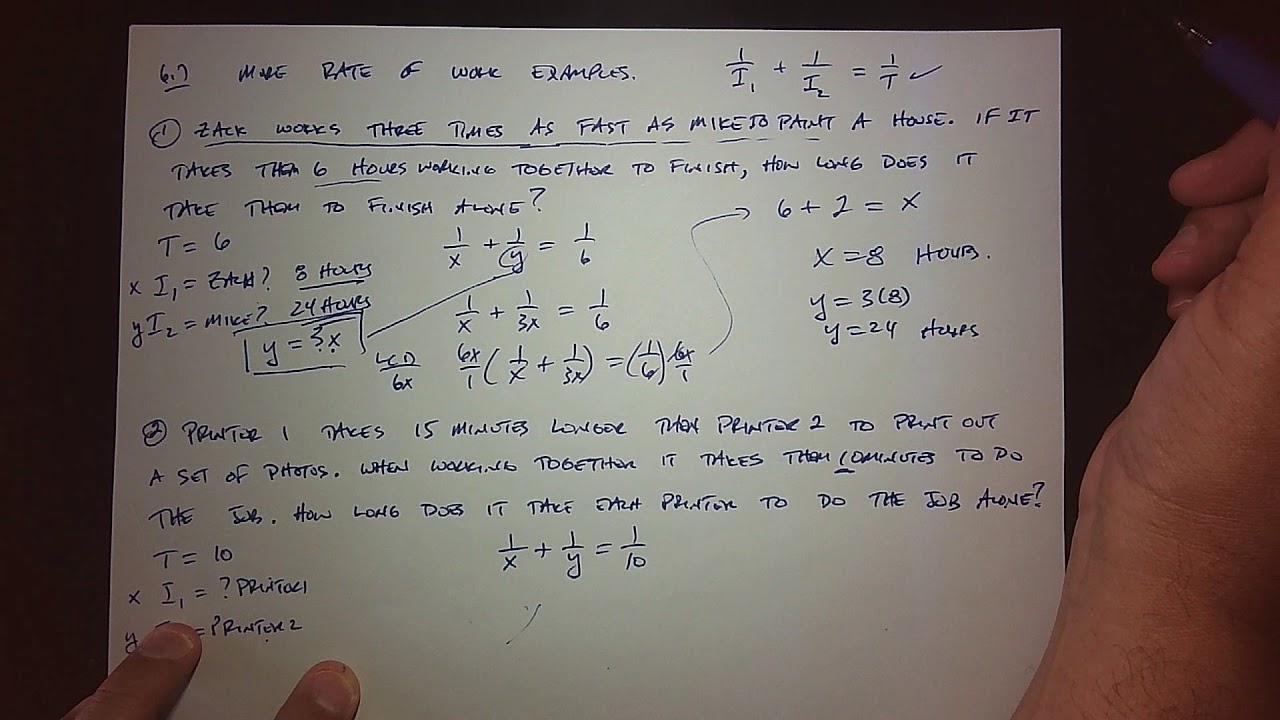 6.7 MORE RATE OF WORK EXAMPLES. 1/I₁ + 1/I₂ = 1/T ✓
① ZACK WORKS THREE TIMES AS FAST AS MIKE TO PAINT A HOUSE. IF IT
TAKES THEM 6 HOURS WORKING TOGETHER TO FINISH, HOW LONG DOES IT
TAKE THEM TO FINISH ALONE?
T = 6
x I₁ = ZACH? 8 HOURS
y I₂ = MIKE? 24 HOURS
y = 3x
1/x + 1/y = 1/6
1/x + 1/3x = 1/6
LCD 6x
6x/1 (1/x + 1/3x) = (1/6) 6x/1
6 + 2 = x
x = 8 HOURS.
y = 3(8)
y = 24 HOURS
② PRINTOR 1 TAKES 15 MINUTES LONGER THEN PRINTOR 2 TO PRINT OUT
A SET OF PHOTOS. WHEN WORKING TOGETHER IT TAKES THEM 10 MINUTES TO DO
THE JOB. HOW LONG DOES IT TAKE EACH PRINTOR TO DO THE JOB ALONE?
T = 10
x I₁ = ? PRINTOR 1
y = PRINTER 2
1/x + 1/y = 1/10